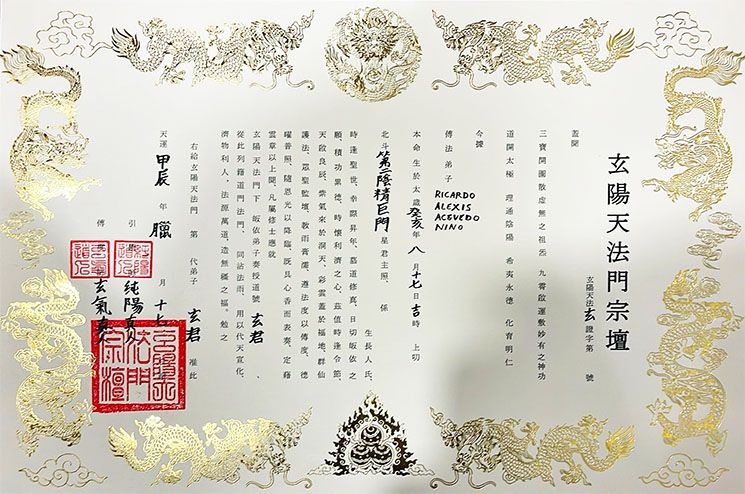 玄陽天法門宗壇
玄陽天法玄證字第 號
蓋聞
三寶開圖散虛無之祖炁 九霄啟運敷妙有之神功
道開太極 理通陰陽 希夷永德 化育明仁
今據
傳法弟子 RICARDO ALEXIS ACEVEDO NINO
本命生於太歲癸亥年八月十七吉時 上叩
北斗第二陰精巨門星君主照、係 生長人氏、
時逢聖世、幸際昇年、慕道修真、日切皈依之
願、積功累德、時懷利濟之心、茲值時逢令節、
天啟良辰、紫氣來於洞天、彩雲蓋於福地群仙
護法、眾聖監壇、敷雨膏濡、遵法度以傳度、德
曜普照、隨恩光以降臨、既具心香而表奏、定藉
雲章以上聞、凡屬修士應就
玄陽天法門下 皈依弟子奏授道號 玄君、
從此列籍道門法門、 同沾法雨、用以代天宣化、
濟物利人、法源萬道、造無極之福。勉之
右給玄陽天法門 第 代弟子 玄君 准此
天運 甲辰 年 臘 月 十七
引 純陽真人
傳 玄氣真人
玄陽天法門宗壇